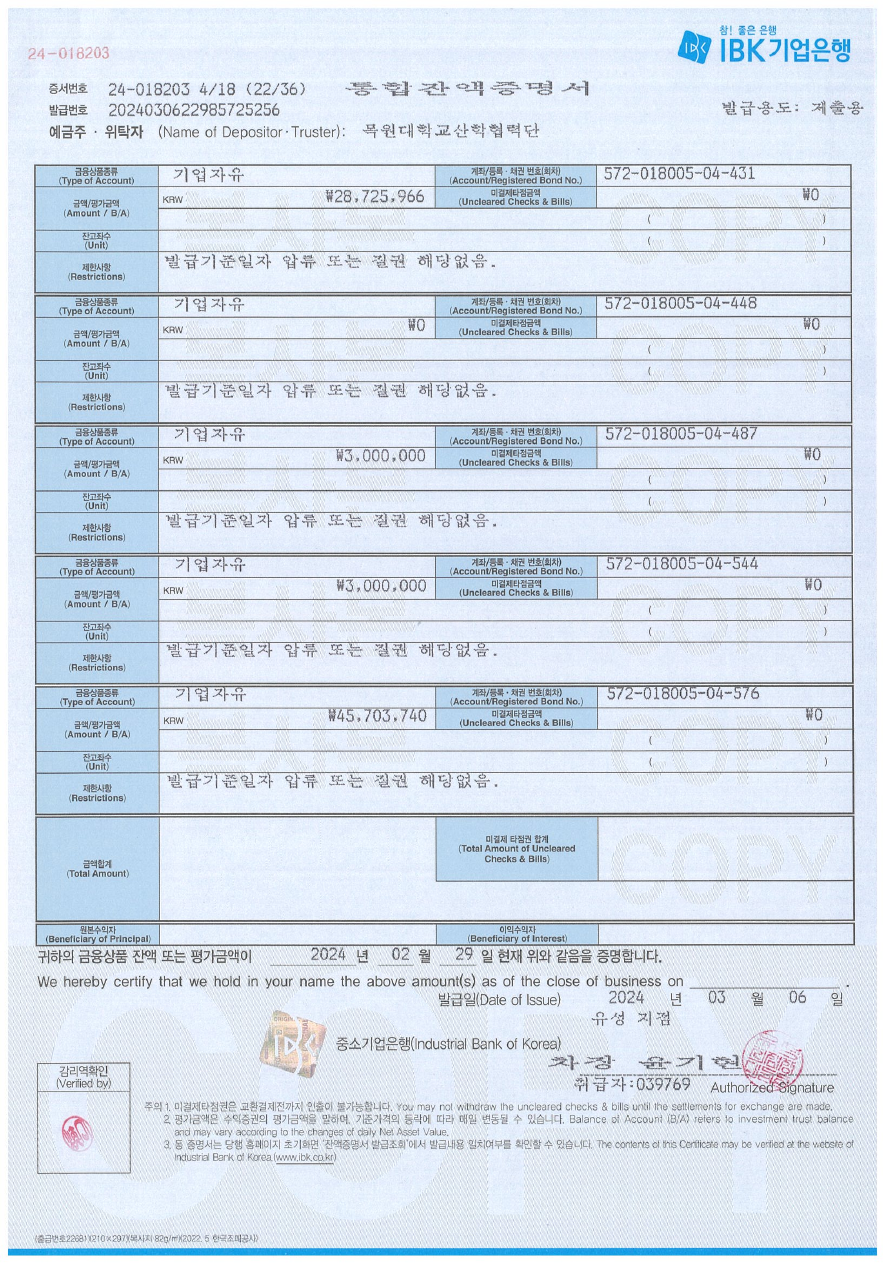 24-018203
참! 좋은 은행
IBK기업은행
증서번호 24-018203 4/18 (22/36) 통합잔액증명서
발급번호 2024030622985725256 발급용도: 제출용
예금주 · 위탁자 (Name of Depositor · Truster): 목원대학교산학협력단
금융상품종류 (Type of Account) 기업자유 계좌/등록 · 채권 번호(회차) (Account/Registered Bond No.) 572-018005-04-431
금액/평가금액 (Amount / B/A) KRW ₩28,725,966 미결제타점금액 (Uncleared Checks & Bills) ₩0
( )
잔고좌수 (Unit) ( )
제한사항 (Restrictions) 발급기준일자 압류 또는 질권 해당없음.
금융상품종류 (Type of Account) 기업자유 계좌/등록 · 채권 번호(회차) (Account/Registered Bond No.) 572-018005-04-448
금액/평가금액 (Amount / B/A) KRW ₩0 미결제타점금액 (Uncleared Checks & Bills) ₩0
( )
잔고좌수 (Unit) ( )
제한사항 (Restrictions) 발급기준일자 압류 또는 질권 해당없음.
금융상품종류 (Type of Account) 기업자유 계좌/등록 · 채권 번호(회차) (Account/Registered Bond No.) 572-018005-04-487
금액/평가금액 (Amount / B/A) KRW ₩3,000,000 미결제타점금액 (Uncleared Checks & Bills) ₩0
( )
잔고좌수 (Unit) ( )
제한사항 (Restrictions) 발급기준일자 압류 또는 질권 해당없음.
금융상품종류 (Type of Account) 기업자유 계좌/등록 · 채권 번호(회차) (Account/Registered Bond No.) 572-018005-04-544
금액/평가금액 (Amount / B/A) KRW ₩3,000,000 미결제타점금액 (Uncleared Checks & Bills) ₩0
( )
잔고좌수 (Unit) ( )
제한사항 (Restrictions) 발급기준일자 압류 또는 질권 해당없음.
금융상품종류 (Type of Account) 기업자유 계좌/등록 · 채권 번호(회차) (Account/Registered Bond No.) 572-018005-04-576
금액/평가금액 (Amount / B/A) KRW ₩45,703,740 미결제타점금액 (Uncleared Checks & Bills) ₩0
( )
잔고좌수 (Unit) ( )
제한사항 (Restrictions) 발급기준일자 압류 또는 질권 해당없음.
금액합계 (Total Amount) 미결제 타점권 합계 (Total Amount of Uncleared Checks & Bills)
COPY
원본수익자 (Beneficiary of Principal) 이익수익자 (Beneficiary of Interest)
귀하의 금융상품 잔액 또는 평가금액이 2024 년 02 월 29 일 현재 위와 같음을 증명합니다.
We hereby certify that we hold in your name the above amount(s) as of the close of business on .
발급일(Date of Issue) 2024 년 03 월 06 일
유성 지점
중소기업은행(Industrial Bank of Korea)
차장 윤기현
취급자:039769 Authorized Signature
감리역확인
(Verified by)
주의 1. 미결제타점권은 교환결제전까지 인출이 불가능합니다. You may not withdraw the uncleared checks & bills until the settlements for exchange are made.
2. 평가금액은 수익증권의 평가금액을 말하며, 기준가격의 등락에 따라 매일 변동될 수 있습니다. Balance of Account (B/A) refers to investment trust balance
and may vary according to the changes of daily Net Asset Value.
3. 동 증명서는 당행 홈페이지 초기화면 '잔액증명서 발급조회'에서 발급내용 일치여부를 확인할 수 있습니다. The contents of this Certificate may be verified at the website of
Industrial Bank of Korea.(www.ibk.co.kr)
COPY